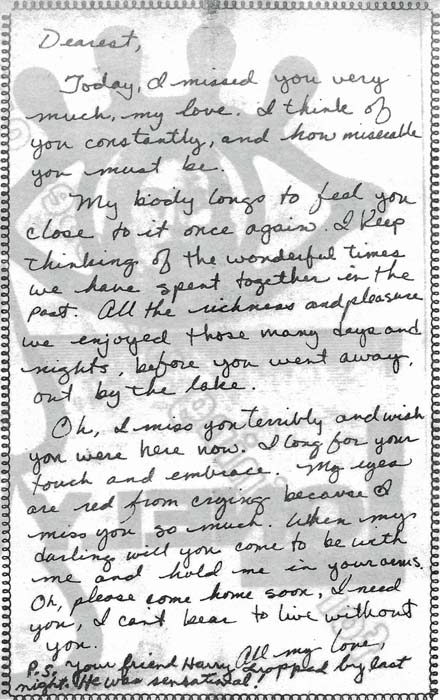 Dearest,
Today, I missed you very
much, my love. I think of
you constantly, and how miserable
you must be.
My body longs to feel you
close to it once again. I keep
thinking of the wonderful times
we have spent together in the
past. All the richness and pleasure
we enjoyed those many days and
nights, before you went away,
out by the lake.
Oh, I miss you terribly and wish
you were here now. I long for your
touch and embrace. My eyes
are red from crying because I
miss you so much. When my
darling will you come to be with
me and hold me in your arms.
Oh, please come home soon, I need
you, I can't bear to live without
you.
All my love,
P.S. Your friend Harry dropped by last
night. He was sensational!